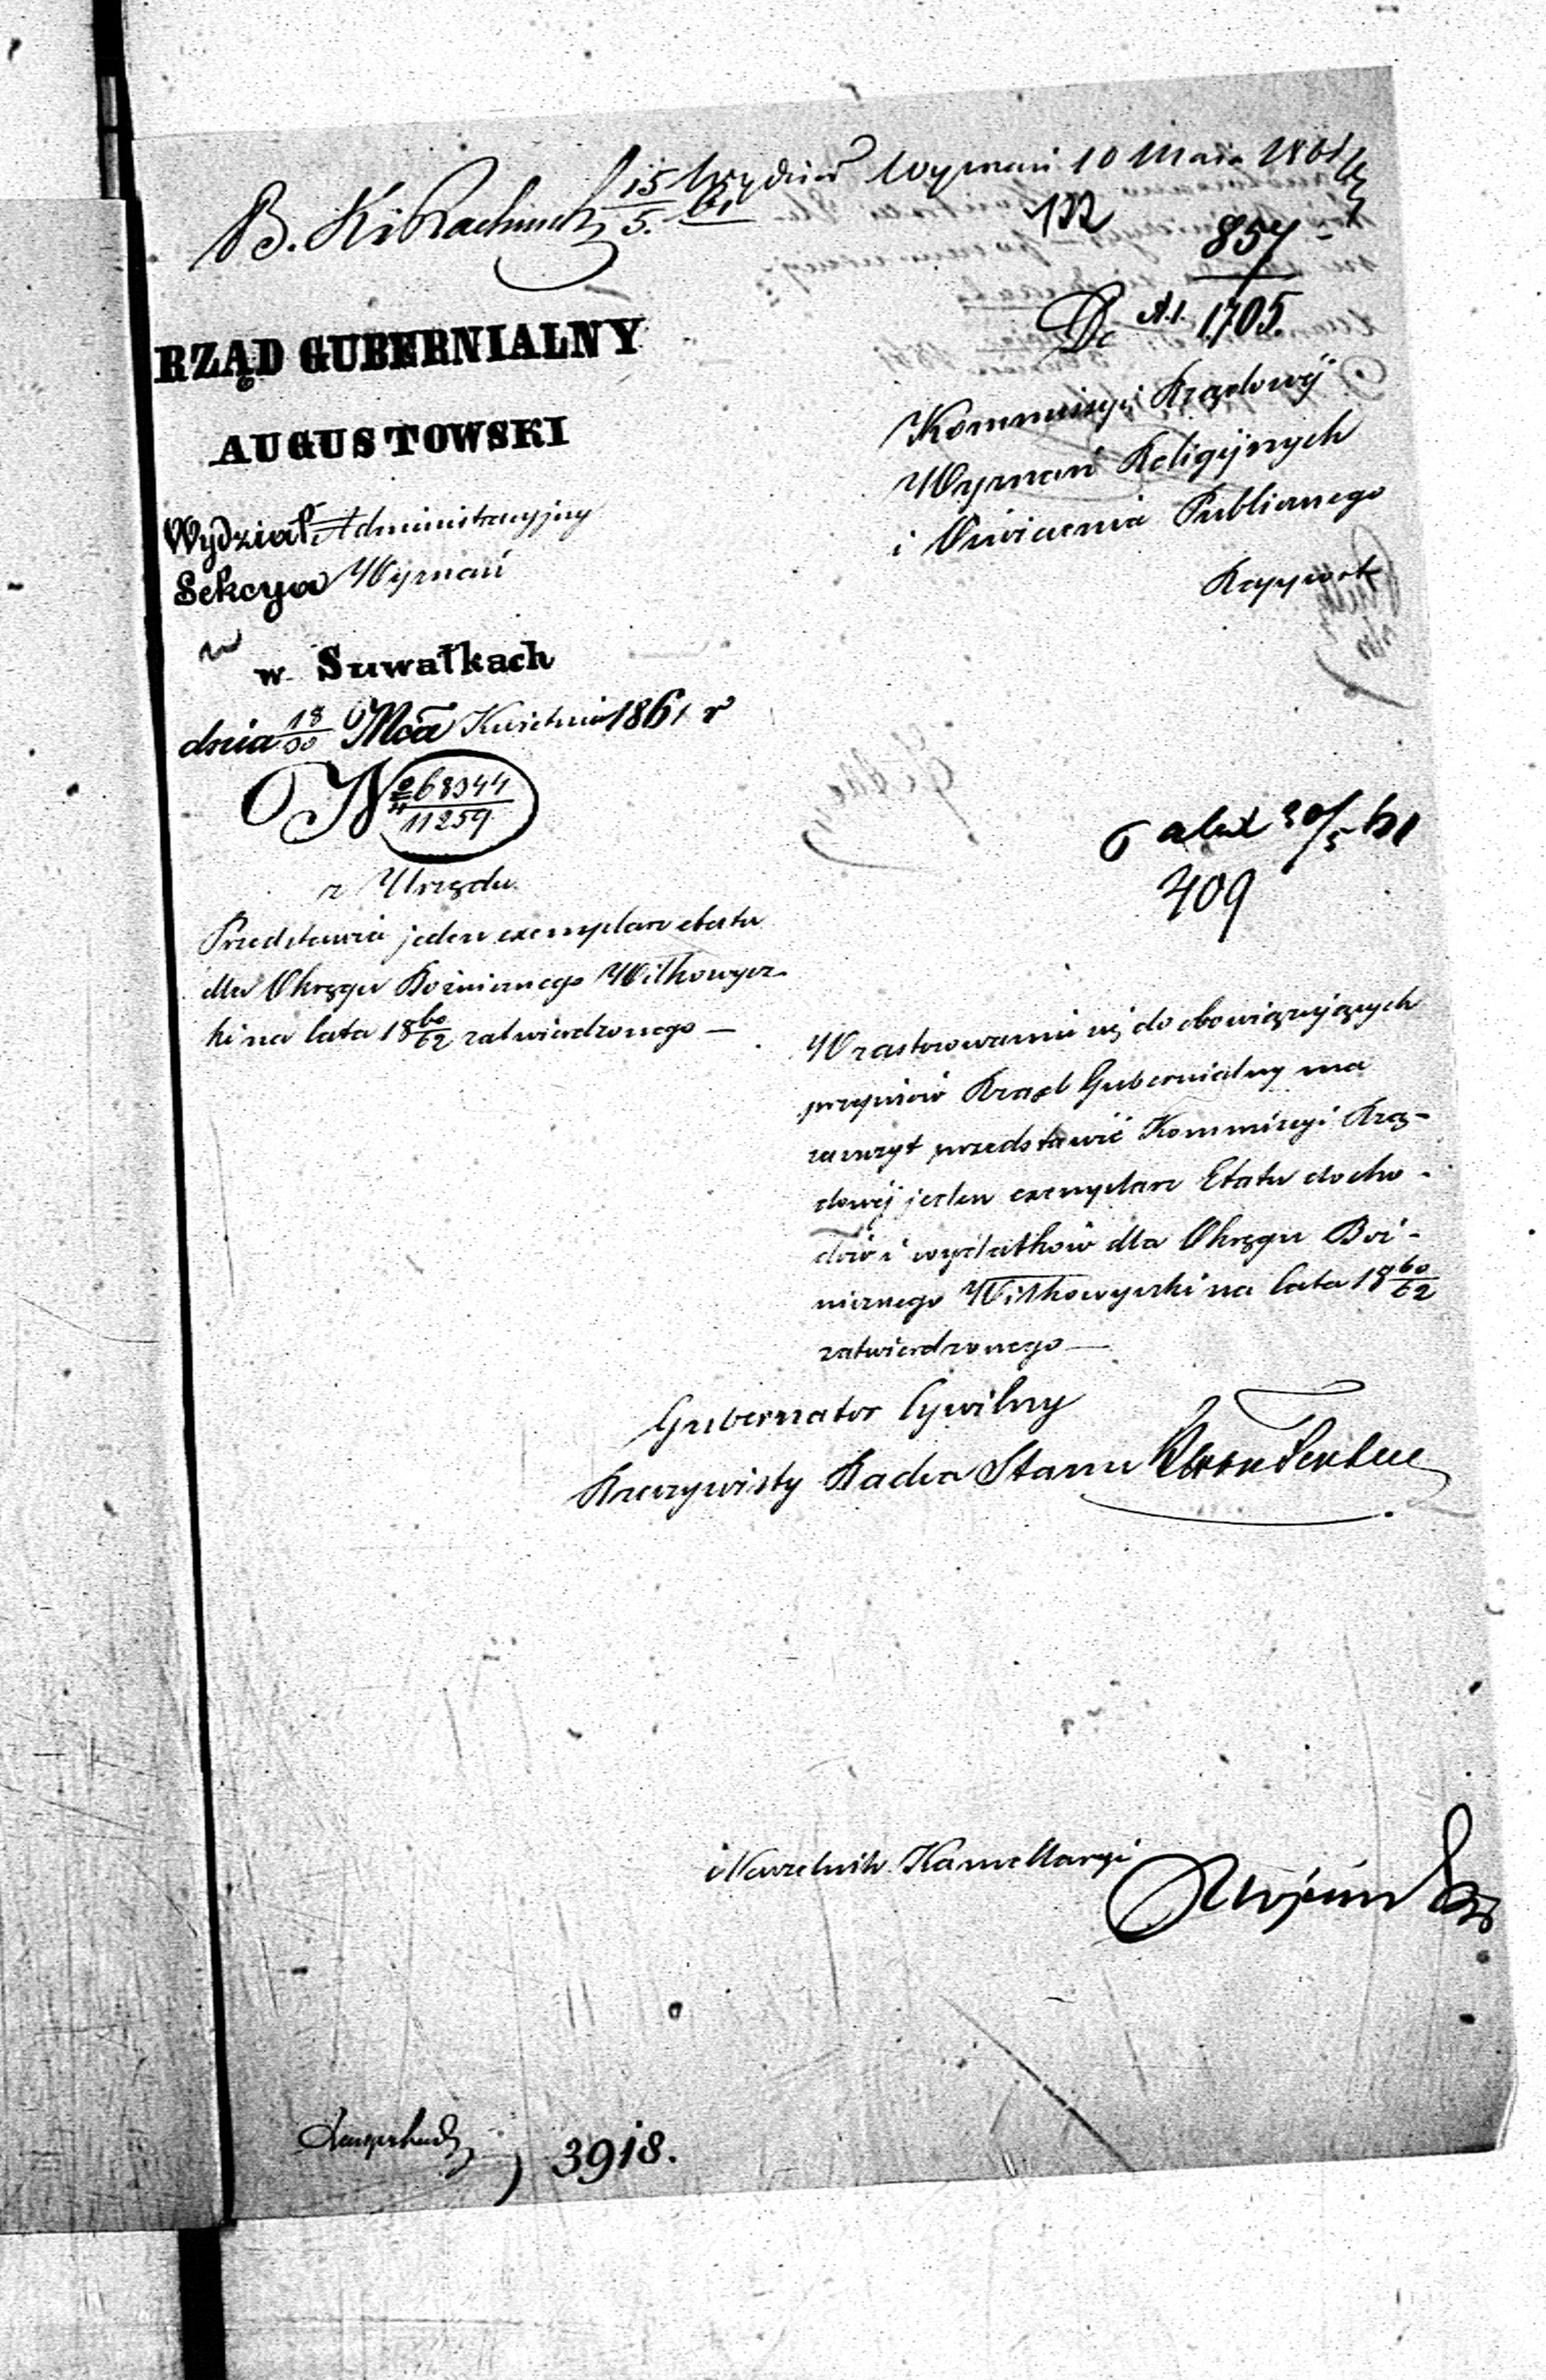 Wydział Wyznań 10 Maja 1861
B. Ki 15/5. 61
132
857
De A.1. 1705.
RZĄD GUBERNIALNY
AUGUSTOWSKI
Wydział Administracyjny
Sekcya Wyznań
w Suwałkach
dnia 18/30 Mca Kwietnia 1861 r
N 68344/11259
z Urzędu.
Przedstawia jeden exemplarz etatu
dla Okręgu Bóżniczego Wiłkowysz-
ki na lata 18 60/62 zatwierdzonego —
Kommissyi Rządowéj
Wyznań Religijnych
i Oświecenia Publicznego
Rapport
ad acta 30/5 61
409
W zastosowaniu się do obowiązujących
przepisów Rząd Gubernialny ma
zaszczyt przedstawić Kommissyi Rzą-
dowéj jeden exemplarz Etatu docho-
dów i wydatków dla Okręgu Boż-
niczego Wiłkowyszki na lata 18 60/62
zatwierdzonego —
Gubernator Cywilny
Rzeczywisty Radca Stanu
Naczelnik Kancellaryi
3918.